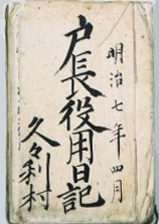 明治七年四月
戸長役用日記
久々利村